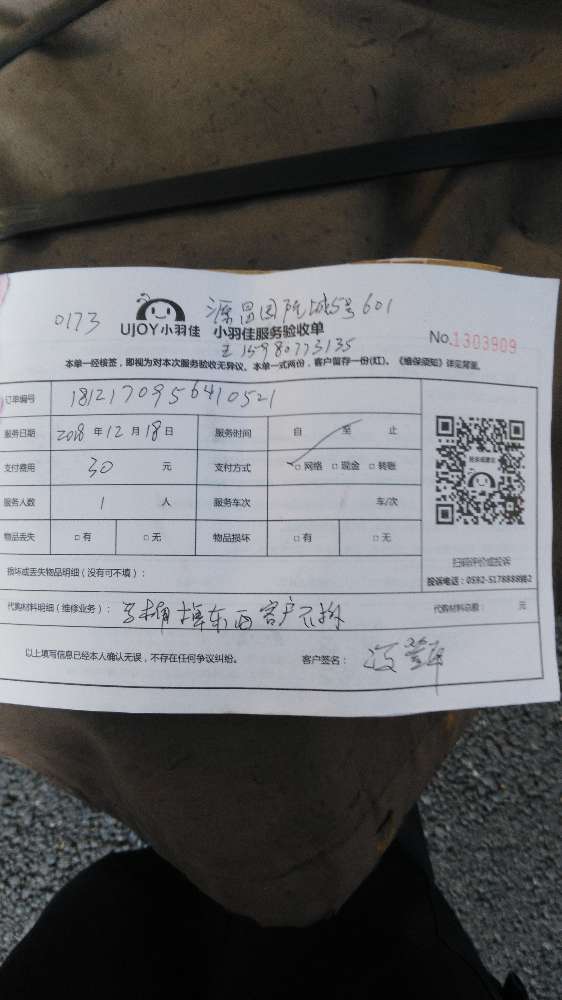 0173
源昌国际城5号601
UJOY小羽佳 小羽佳服务验收单
王15980773135
No.1303909
本单一经核签，即视为对本次服务验收无异议。本单一式两份，客户留存一份(红)。《维保须知》详见背面。
订单编号 1812170956410521
服务日期 2018 年 12 月 18 日 服务时间 自 至 止
支付费用 30 元 支付方式 □ 网络 □ 现金 □ 转账
服务人数 1 人 服务车次 车/次
物品丢失 □ 有 □ 无 物品损坏 □ 有 □ 无
扫码评价或投诉
投诉电话：0592-5178888转2
损坏或丢失物品明细（没有可不填）：
代购材料明细（维修业务）： 马桶掉东西客户不拆 代购材料总额： 元
以上填写信息已经本人确认无误，不存在任何争议纠纷。 客户签名：